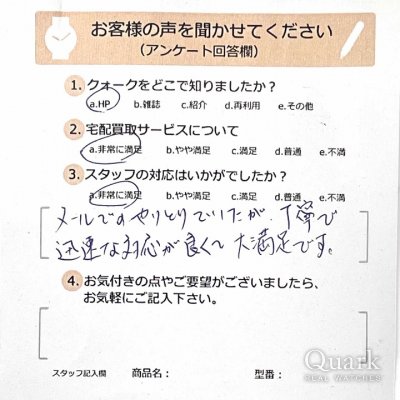 お客様の声を聞かせてください
(アンケート回答欄)
1. クォークをどこで知りましたか？
a.HP b.雑誌 c.紹介 d.再利用 e.その他
2. 宅配買取サービスについて
a.非常に満足 b.やや満足 c.満足 d.普通 e.不満
3. スタッフの対応はいかがでしたか？
a.非常に満足 b.やや満足 c.満足 d.普通 e.不満
メールでのやりとりでしたが、丁寧で
迅速な対応が良くて大満足です。
4. お気付きの点やご要望がございましたら、
お気軽にご記入下さい。
Quark
REAL WATCHES
スタッフ記入欄 商品名： 型番：